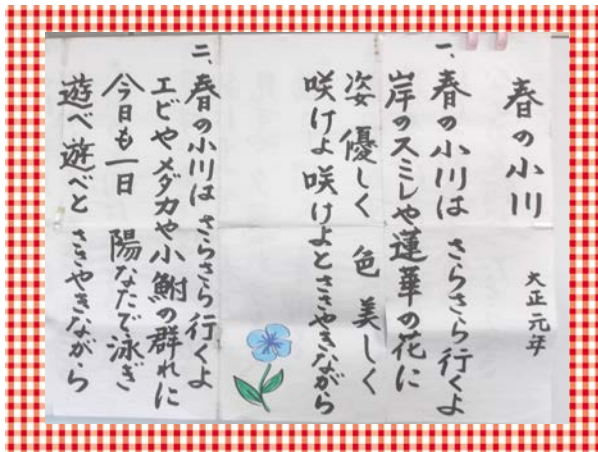 春の小川
大正元年
一、春の小川は さらさら行くよ
岸のスミレや蓮華の花に
姿優しく 色美しく
咲けよ咲けよとささやきながら
二、春の小川は さらさら行くよ
エビやメダカや小鮒の群れに
今日も一日 陽なたで泳ぎ
遊べ遊べと ささやきながら